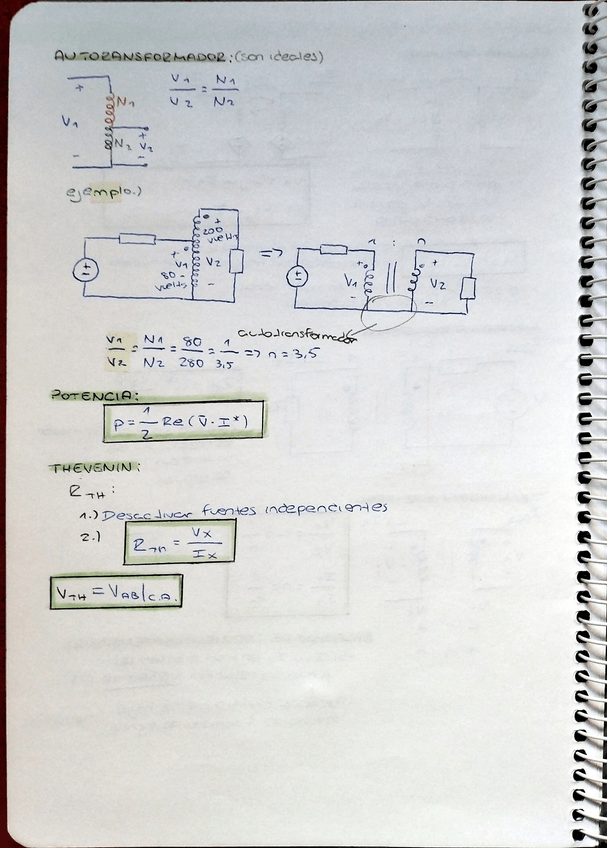 AUTOTRANSFORMADOR: (son ideales)
+ N1 V1/V2 = N1/N2
V1 + N2 V2
- -
ejemplo.)
+ 200 vuelts V2 - => 1 : n
+ V1 - 80 vuelts + V1 - + V2 -
autotransformador
V1/V2 = N1/N2 = 80/280 = 1/3,5 => n = 3,5
POTENCIA:
P = 1/2 Re (V̄ · I*)
THEVENIN:
RTH:
1.) Desactivar fuentes independientes
2.) RTH = Vx/Ix
VTH = VAB|C.A.